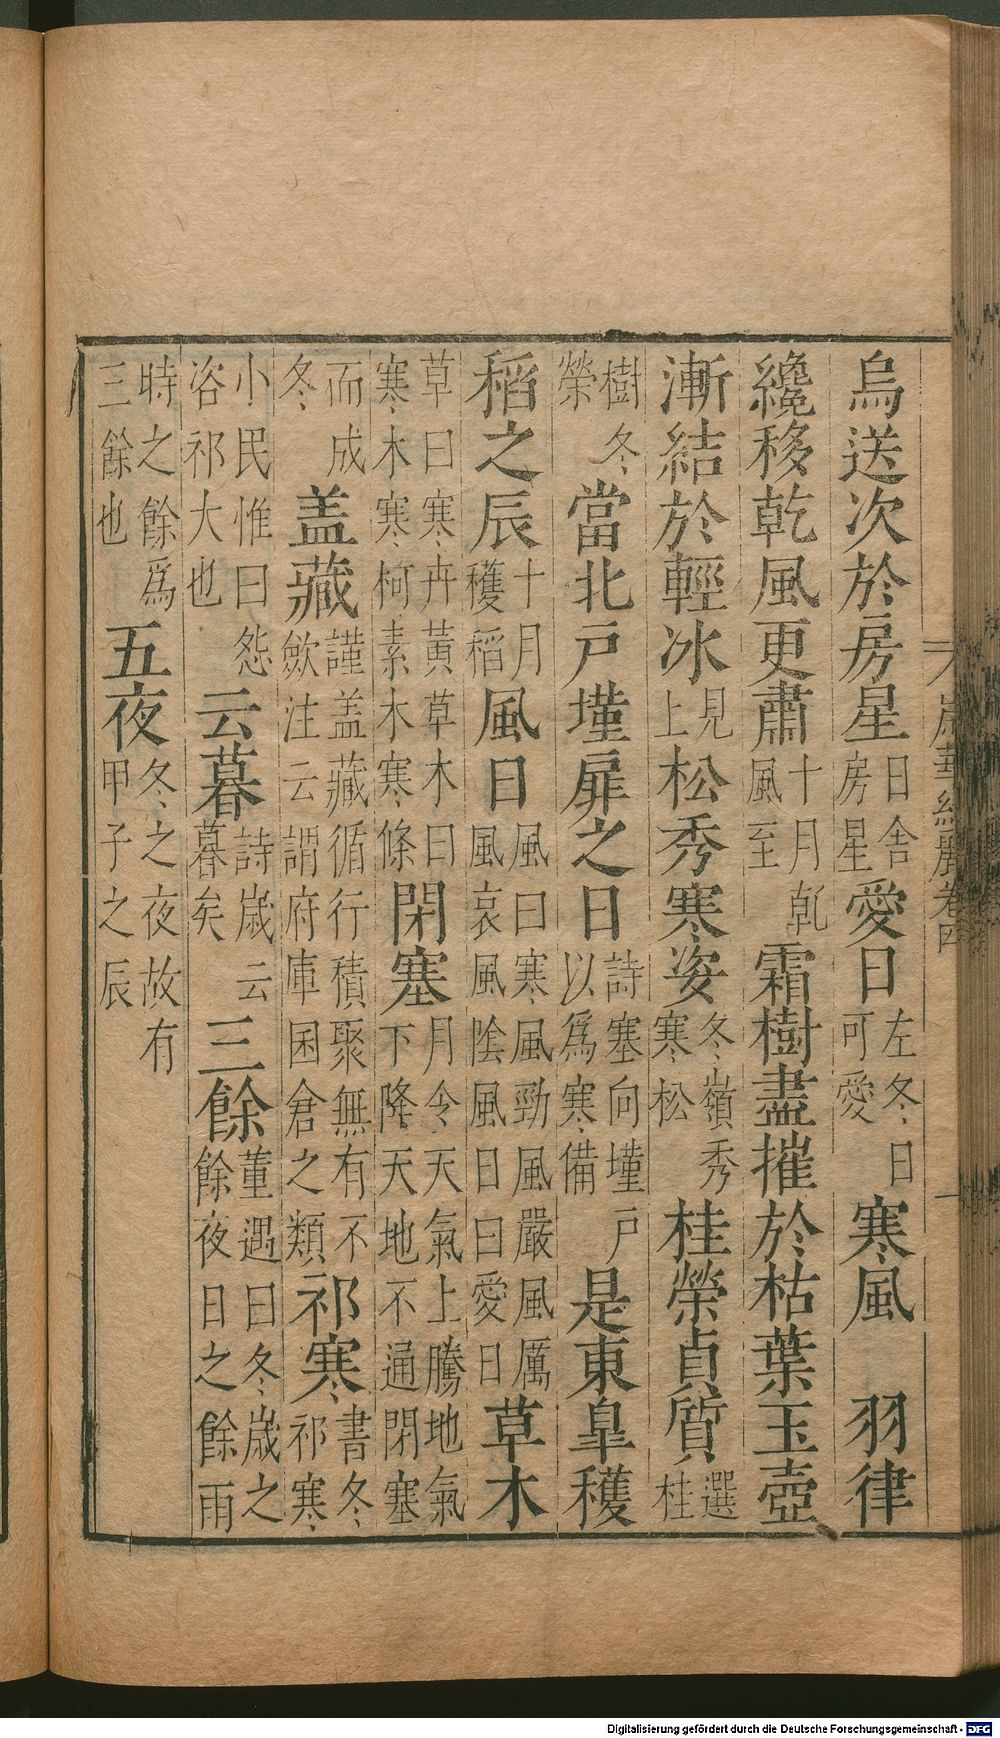 烏送次於房星日舍房星愛日左冬日可愛寒風 羽律
纔移乾風更肅十月乹風至霜樹盡摧於枯葉玉壺
漸結於輕冰見上松秀寒姿冬嶺秀寒松桂榮貞質選桂
樹冬榮當北戸墐扉之日詩塞向墐戸以爲寒備是東臯穫
稻之辰十月穫稻風日風曰寒風勁風嚴風厲風哀風陰風日曰愛日草木
草曰寒卉黃草木曰寒木寒柯素木寒條閉塞月令天氣上騰地氣下降天地不通閉塞
而成冬盖藏謹盖藏循行積聚無有不歛注云謂府庫囷倉之類祁寒書冬祁寒
小民惟曰怨咨祁大也云暮詩歳云暮矣三餘董遇曰冬歳之餘夜日之餘雨
時之餘爲三餘也五夜冬之夜故有甲子之辰
歲華紀麗卷四
一
Digitalisierung gefördert durch die Deutsche Forschungsgemeinschaft - DFG